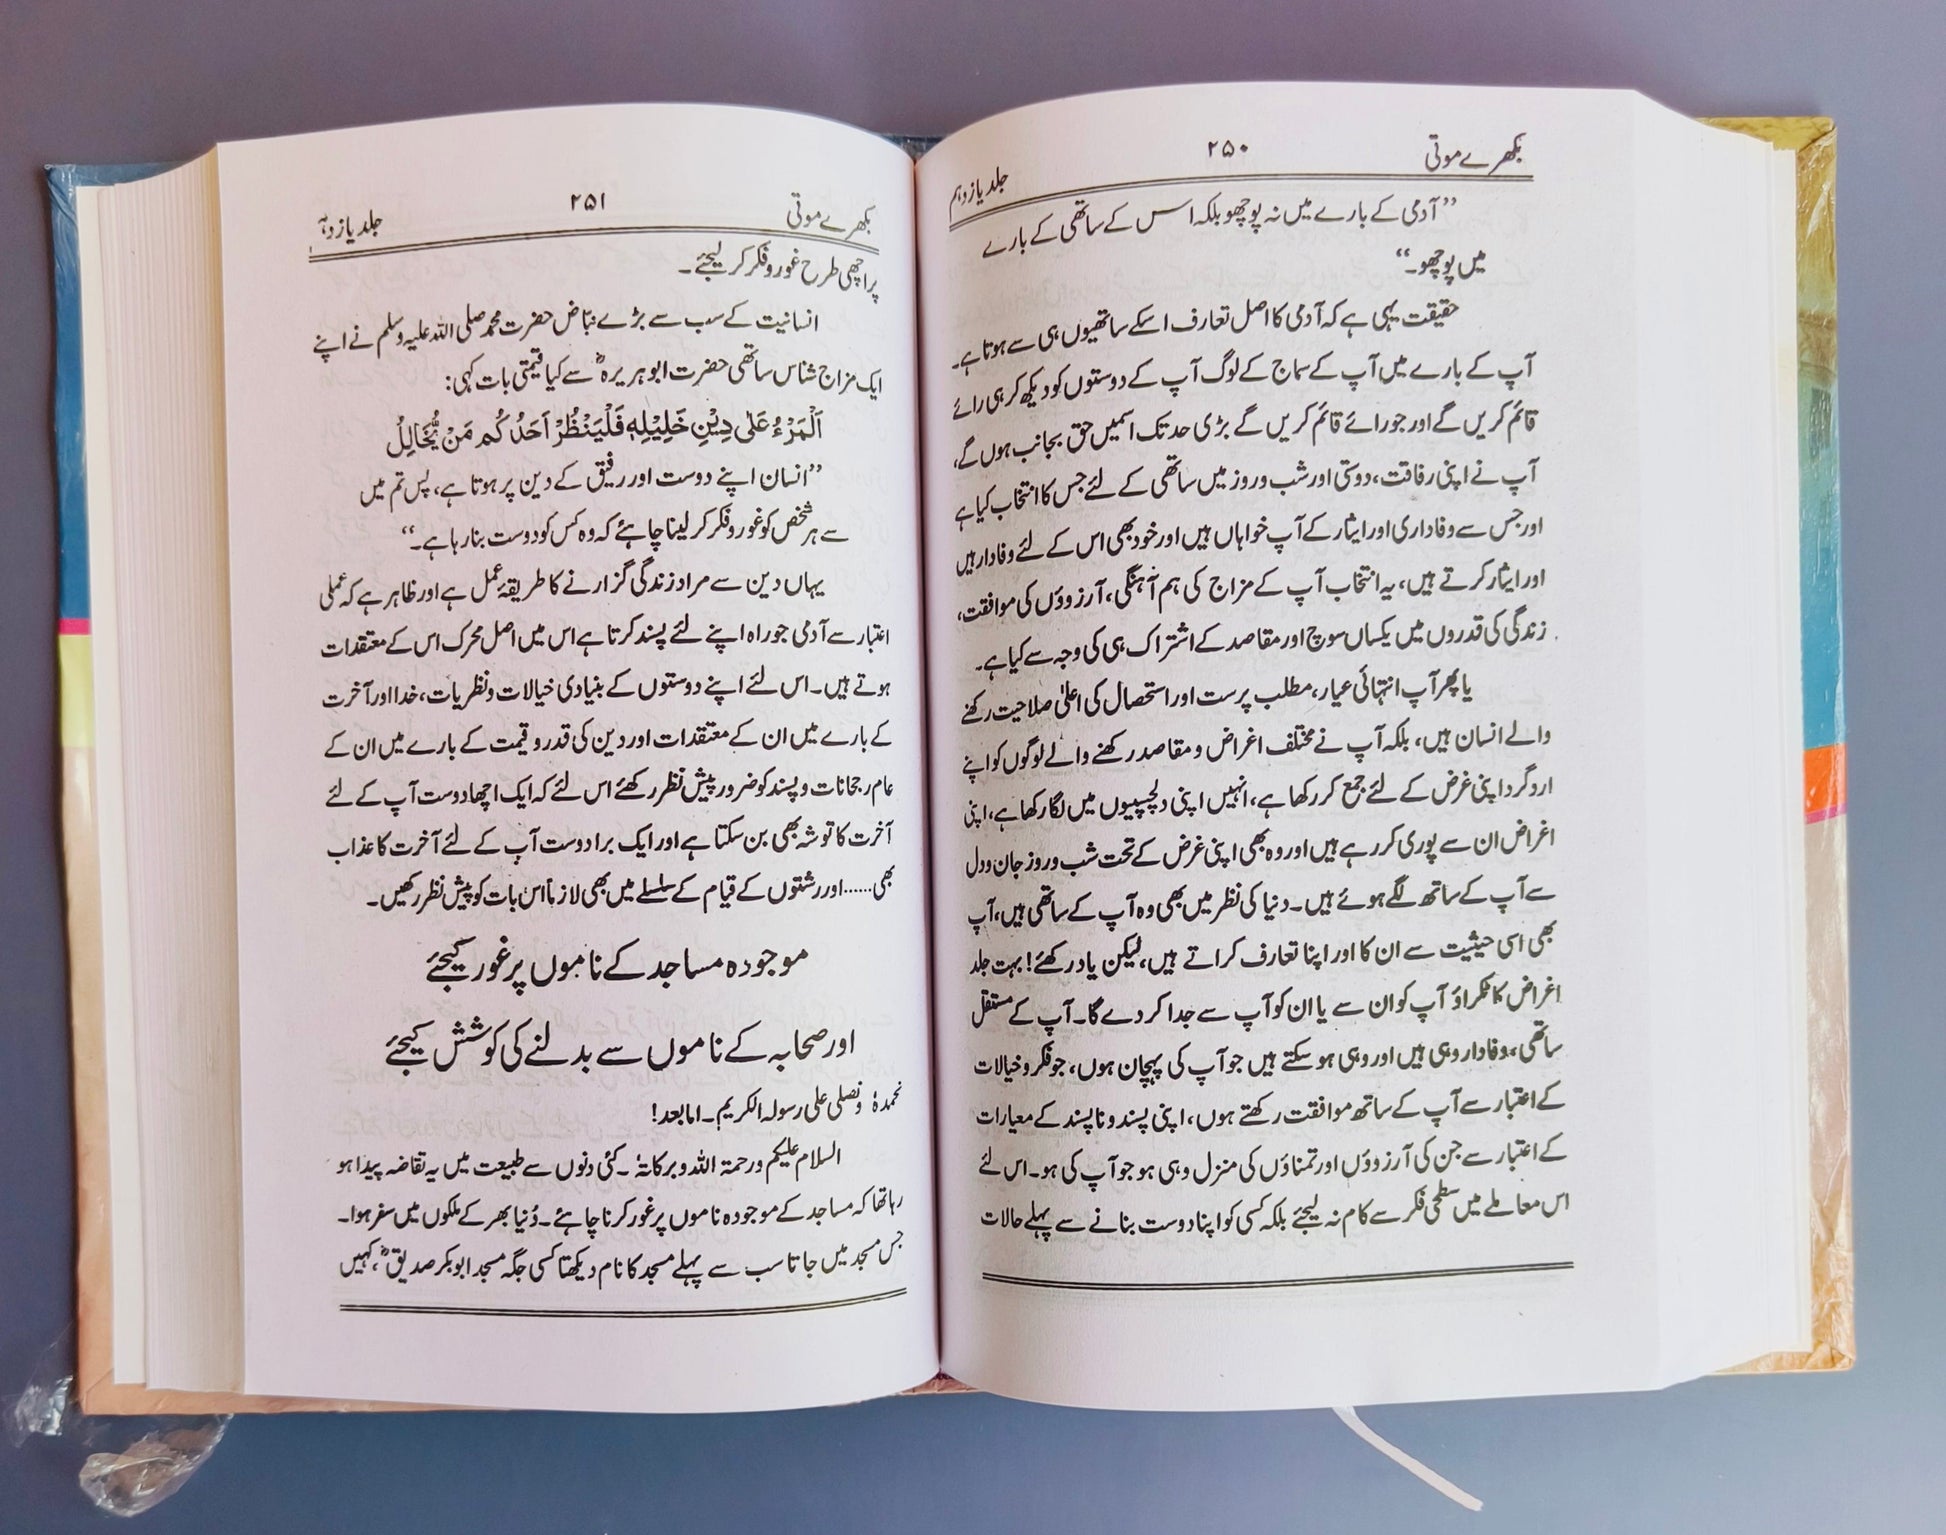 بکھرے موتی ۲۵۰ جلد یازدہم
”آدمی کے بارے میں نہ پوچھو بلکہ اس کے ساتھی کے بارے
میں پوچھو۔“
حقیقت یہی ہے کہ آدمی کا اصل تعارف اسکے ساتھیوں ہی سے ہوتا ہے۔
آپ کے بارے میں آپ کے سماج کے لوگ آپ کے دوستوں کو دیکھ کر ہی رائے
قائم کریں گے اور جو رائے قائم کریں گے بڑی حد تک اسمیں حق بجانب ہوں گے،
آپ نے اپنی رفاقت، دوستی اور شب و روز میں ساتھی کے لئے جس کا انتخاب کیا ہے
اور جس سے وفاداری اور ایثار کے آپ خواہاں ہیں اور خود بھی اس کے لئے وفادار ہیں
اور ایثار کرتے ہیں، یہ انتخاب آپ کے مزاج کی ہم آہنگی، آرزوؤں کی موافقت،
زندگی کی قدروں میں یکساں سوچ اور مقاصد کے اشتراک ہی کی وجہ سے کیا ہے۔
یا پھر آپ انتہائی عیار، مطلب پرست اور استحصال کی اعلیٰ صلاحیت رکھنے
والے انسان ہیں، بلکہ آپ نے مختلف اغراض و مقاصد رکھنے والے لوگوں کو اپنے
اردگرد اپنی غرض کے لئے جمع کر رکھا ہے، انہیں اپنی دلچسپیوں میں لگا رکھا ہے، اپنی
اغراض ان سے پوری کر رہے ہیں اور وہ بھی اپنی غرض کے تحت شب و روز جان و دل
سے آپ کے ساتھ لگے ہوئے ہیں۔ دنیا کی نظر میں بھی وہ آپ کے ساتھی ہیں، آپ
بھی اسی حیثیت سے ان کا اور اپنا تعارف کراتے ہیں، لیکن یاد رکھئے! بہت جلد
اغراض کا ٹکراؤ آپ کو ان سے یا ان کو آپ سے جدا کر دے گا۔ آپ کے مستقل
ساتھی، وفادار وہی ہیں اور وہی ہو سکتے ہیں جو آپ کی پہچان ہوں، جو فکر و خیالات
کے اعتبار سے آپ کے ساتھ موافقت رکھتے ہوں، اپنی پسند و ناپسند کے معیارات
کے اعتبار سے جن کی آرزوؤں اور تمناؤں کی منزل وہی ہو جو آپ کی ہو۔ اس لئے
اس معاملے میں سطحی فکر سے کام نہ لیجئے بلکہ کسی کو اپنا دوست بنانے سے پہلے حالات
بکھرے موتی ۲۵۱ جلد یازدہم
پر اچھی طرح غور و فکر کر لیجئے۔
انسانیت کے سب سے بڑے نباض حضرت محمد صلی اللہ علیہ وسلم نے اپنے
ایک مزاج شناس ساتھی حضرت ابو ہریرہؓ سے کیا قیمتی بات کہی:
اَلْمَرْءُ عَلٰی دِیْنِ خَلِیْلِهٖ فَلْیَنْظُرْ اَحَدُكُم مَنْ یُّخَالِلُ
”انسان اپنے دوست اور رفیق کے دین پر ہوتا ہے، پس تم میں
سے ہر شخص کو غور و فکر کر لینا چاہئے کہ وہ کس کو دوست بنا رہا ہے۔“
یہاں دین سے مراد زندگی گزارنے کا طریقۂ عمل ہے اور ظاہر ہے کہ عملی
اعتبار سے آدمی جو راہ اپنے لئے پسند کرتا ہے اس میں اصل محرک اس کے معتقدات
ہوتے ہیں۔ اس لئے اپنے دوستوں کے بنیادی خیالات و نظریات، خدا اور آخرت
کے بارے میں ان کے معتقدات اور دین کی قدر و قیمت کے بارے میں ان کے
عام رجحانات و پسند کو ضرور پیش نظر رکھئے اس لئے کہ ایک اچھا دوست آپ کے لئے
آخرت کا توشہ بھی بن سکتا ہے اور ایک برا دوست آپ کے لئے آخرت کا عذاب
بھی......اور رشتوں کے قیام کے سلسلے میں بھی لازماً اس بات کو پیش نظر رکھیں۔
موجودہ مساجد کے ناموں پر غور کیجئے
اور صحابہ کے ناموں سے بدلنے کی کوشش کیجئے
نحمدہٗ ونصلی علی رسولہ الکریم۔ اما بعد!
السلام علیکم ورحمۃ اللہ وبرکاتہٗ۔ کئی دنوں سے طبیعت میں یہ تقاضہ پیدا ہو
رہا تھا کہ مساجد کے موجودہ ناموں پر غور کرنا چاہئے۔ دُنیا بھر کے ملکوں میں سفر ہوا۔
جس مسجد میں جاتا سب سے پہلے مسجد کا نام دیکھتا کسی جگہ مسجد ابوبکر صدیقؓ، کہیں